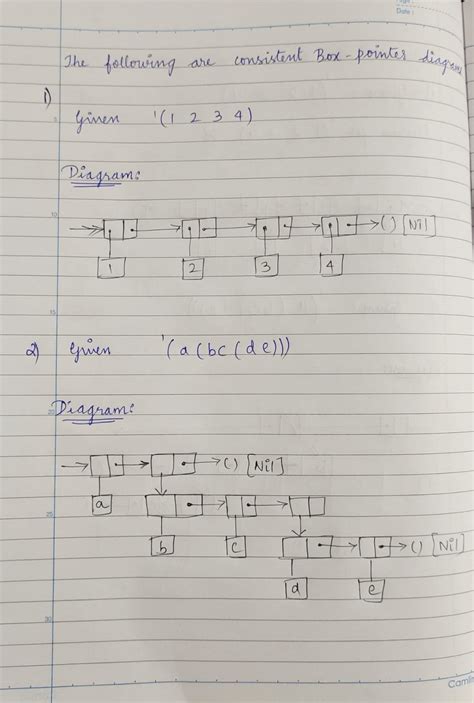 Date :
The following are consistent Box-pointer diagrams
1)
Given '(1 2 3 4)
Diagram:
() [Nil]
1 2 3 4
2) Given '(a(bc(de)))
Diagram:
() [Nil]
a
b c
() [Nil]
d e
10
15
20
25
30
Camlin